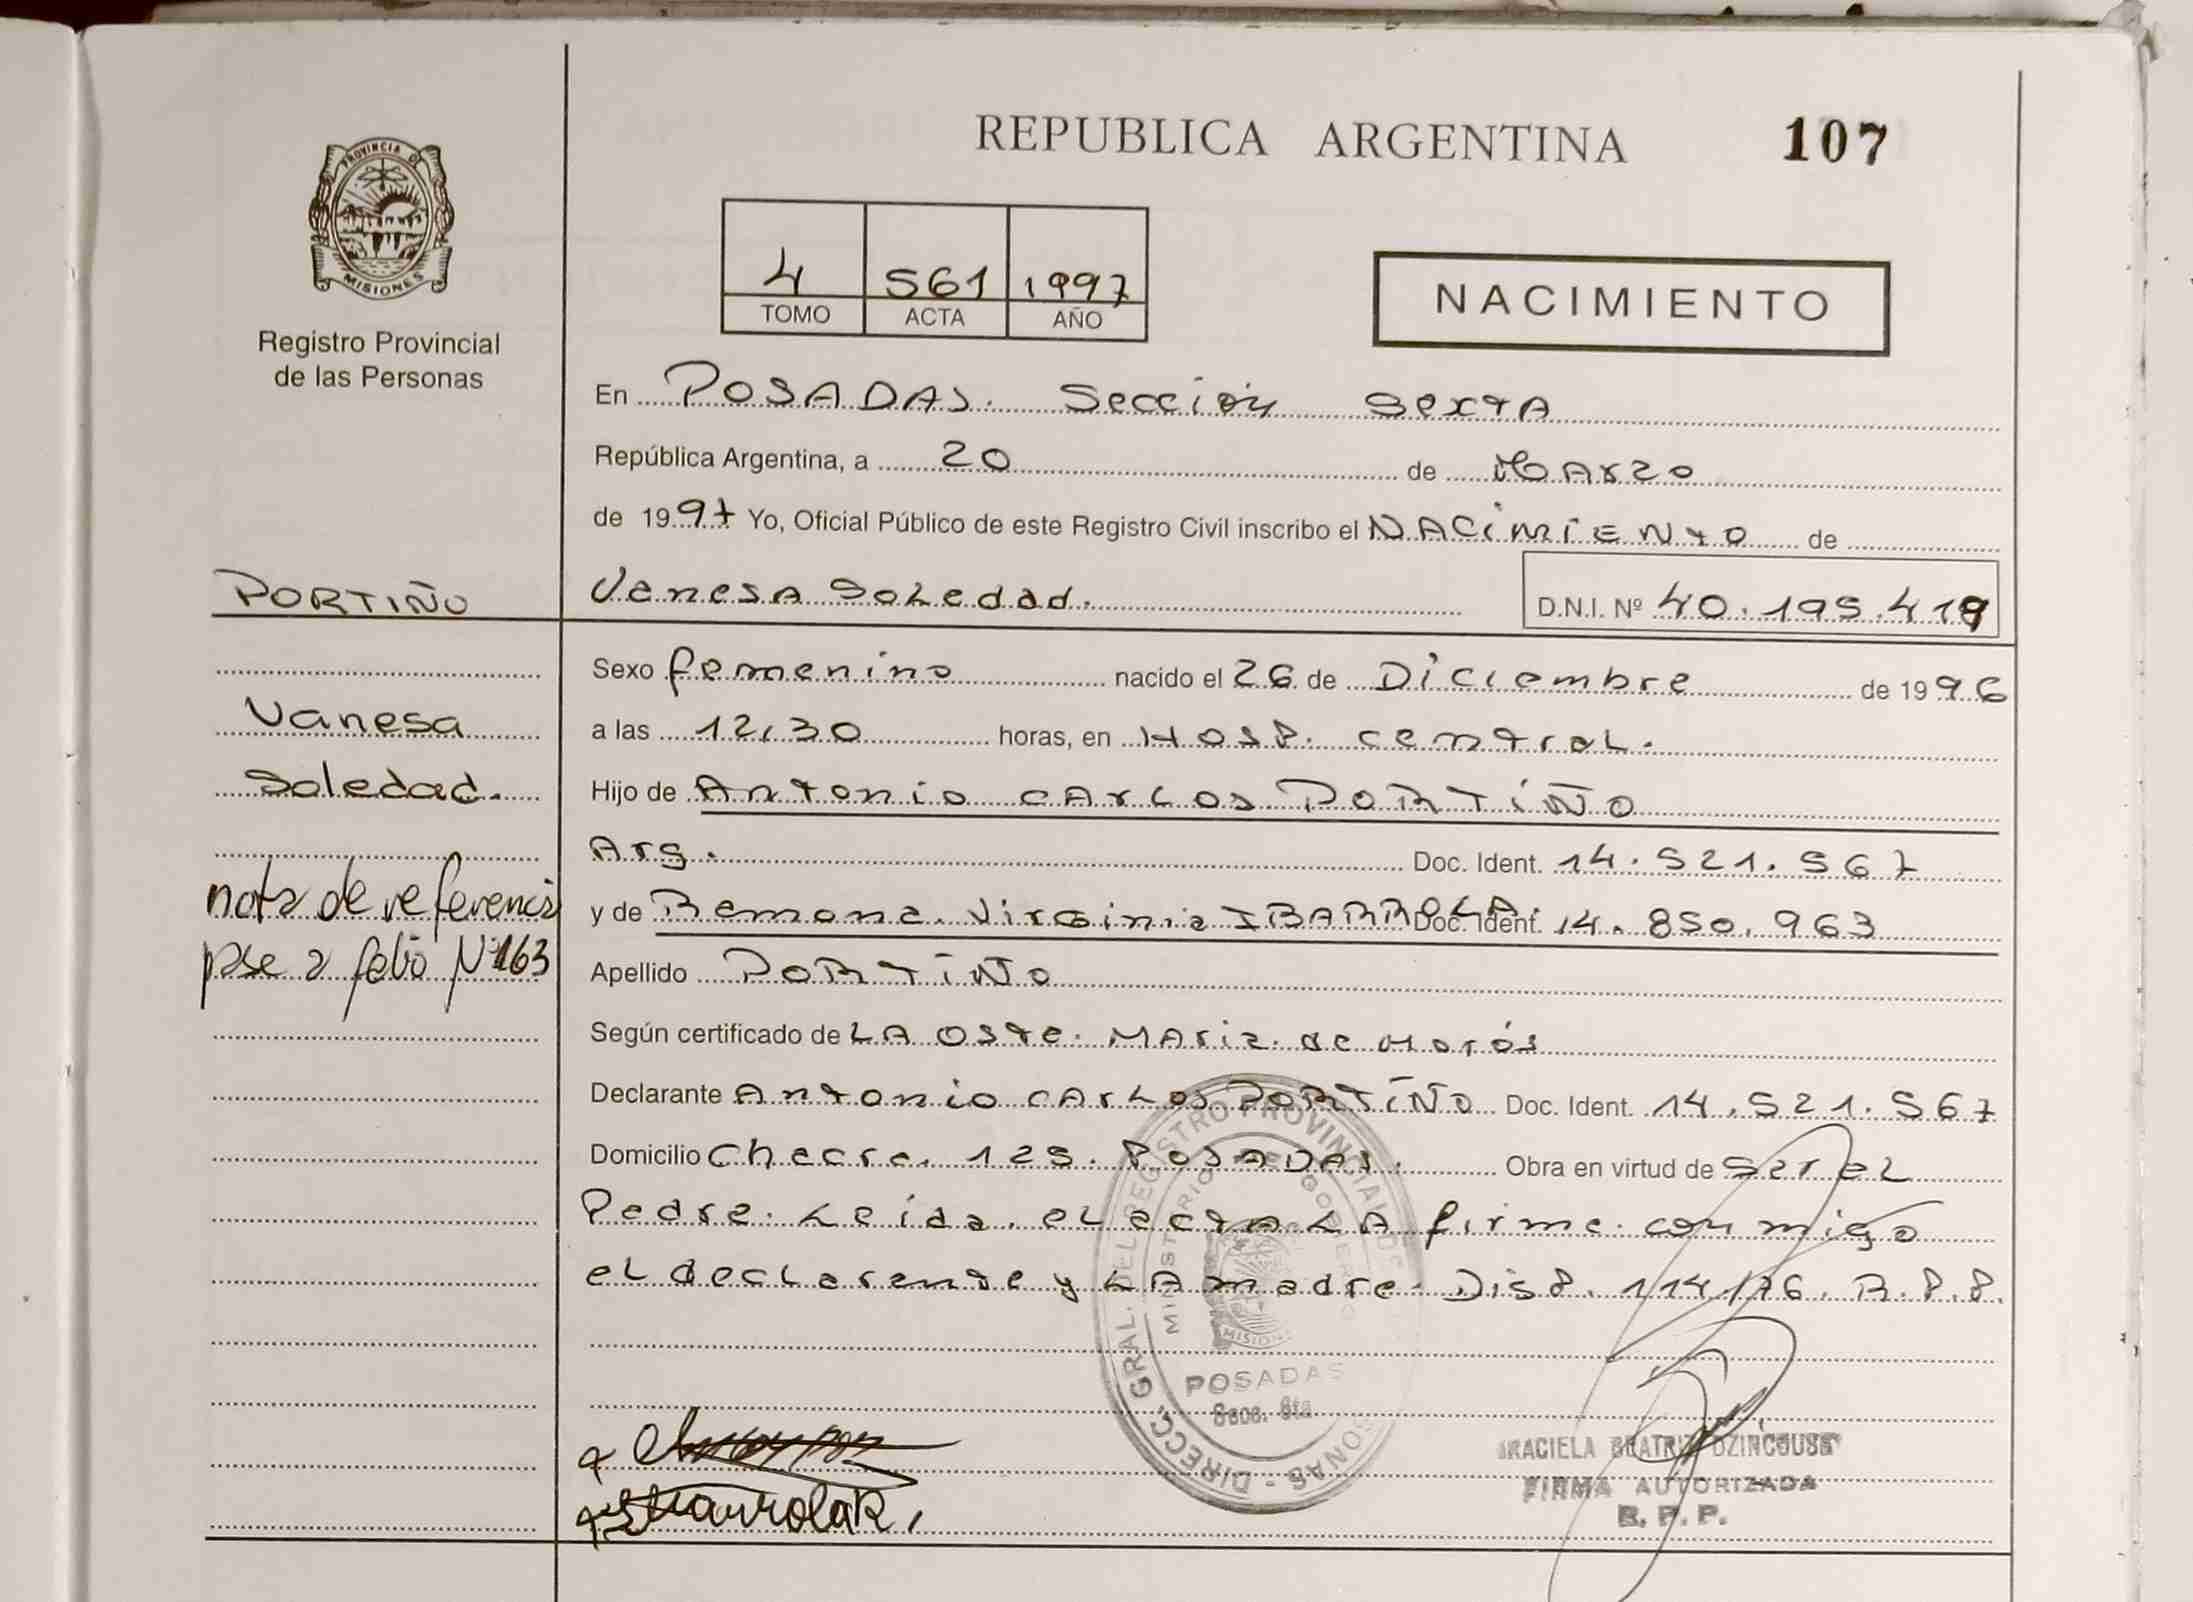 REPUBLICA ARGENTINA
107
PROVINCIA DE
MISIONES
Registro Provincial
de las Personas
4 561 1997
TOMO ACTA AÑO
NACIMIENTO
En POSADAS. Sección Sexta
República Argentina, a 20 de Marzo
de 1997 Yo, Oficial Público de este Registro Civil inscribo el NACIMIENTO de
PORTIÑO
Vanesa Soledad. D.N.I. Nº 40.195.419
Sexo femenino nacido el 26 de Diciembre de 1996
Vanesa
a las 12,30 horas, en Hosp. central.
Soledad.
Hijo de Antonio CARLOS PORTIÑO
Arg. Doc. Ident. 14.521.567
nota de referencia
y de Ramona Virginia IBARROLA. Doc. Ident. 14.850.963
pase a folio Nº 163
Apellido PORTIÑO
Según certificado de LA Obste. Maria de
Declarante Antonio CARLOS PORTIÑO Doc. Ident. 14.521.567
Domicilio Chacra. 125. POSADAS. Obra en virtud de Ser el
Padre. Leida el acta LA firma con migo
el declarante y LA madre. Disp. 114/96. R.P.P.
DIRECC. GRAL. DEL REGISTRO PROVINCIAL DE
MINISTERIO DE GOBIERNO
MISIONES
POSADAS
Secc. 6ta
GRACIELA BEATRIZ
FIRMA AUTORIZADA
R. P. P.